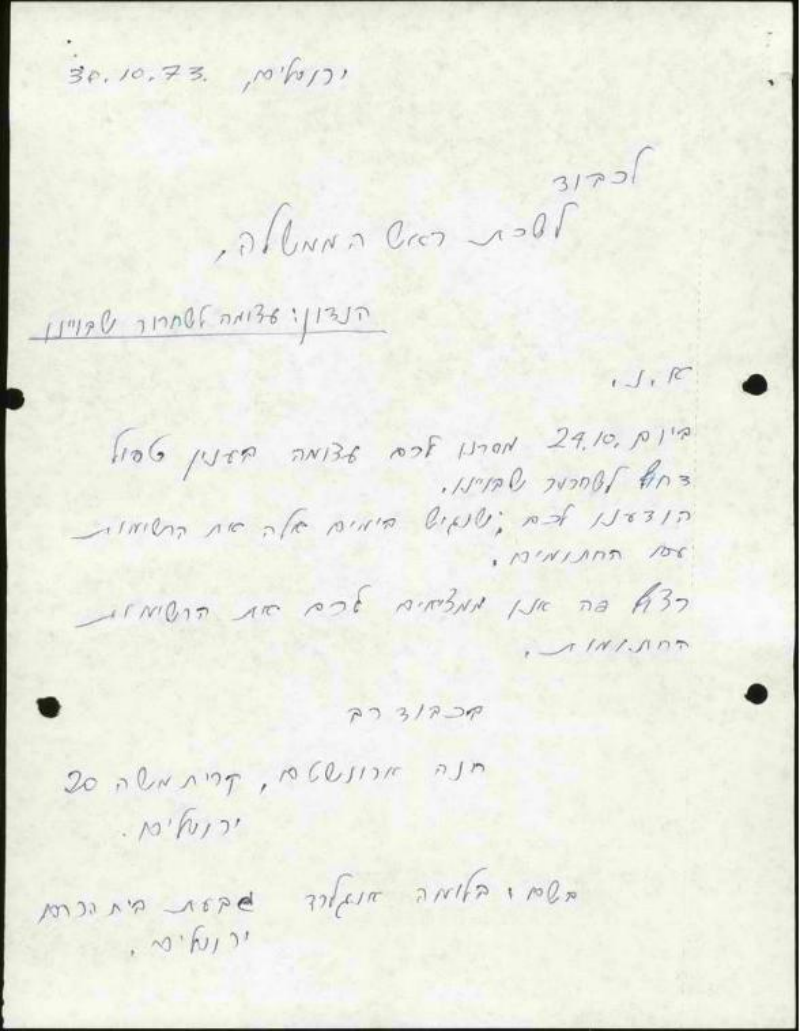 ירושלים, 30.10.73.
לכבוד
לשכת ראש הממשלה,
הנדון: עצומה לשחרור שבויינו
א.נ.
ביום 24.10. מסרנו לכם עצומה בענין טפול
דחוף לשחרור שבויינו.
הודענו לכם, שנגיש בימים אלה את הרשימות
עם החתומים.
רצוף פה אנו ממציאים לכם את הרשימות
החתומות.
בכבוד רב
חנה ארונשטם, קרית משה 20
ירושלים.
בשם: בלומה אנגלרד גבעת בית הכרם
ירושלים.